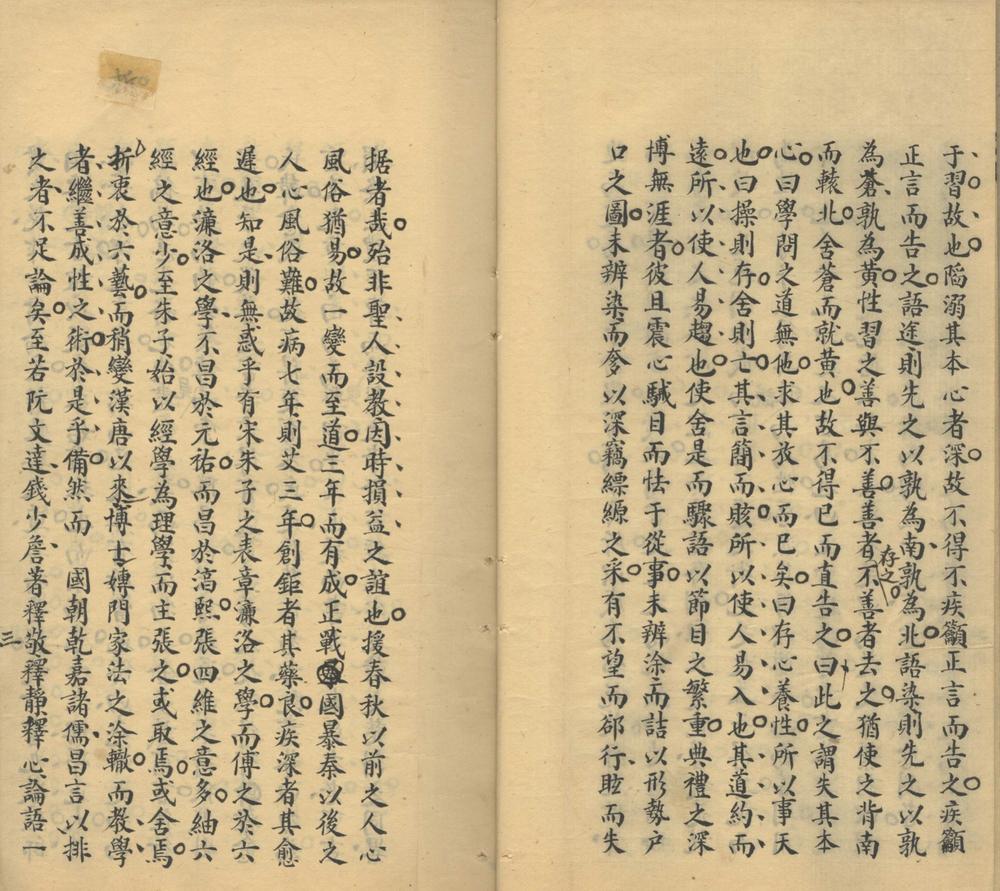 于習故也陷溺其本心者深故不得不疾籲正言而告之疾籲
正言而告之語途則先之以孰為南孰為北語染則先之以孰
為蒼孰為黃性習之善與不善善者存之不善者去之猶使之背南
而轅北舍蒼而就黃也故不得已而直告之曰此之謂失其本
心曰學問之道無他求其放心而已矣曰存心養性所以事天
也曰操則存舍則亡其言簡而賅所以使人易入也其道約而
遠所以使人易趨也使舍是而驟語以節目之繁重典禮之深
博無涯者彼且震心駴目而怯于從事未辨涂而詰以形勢户
口之圖未辨染而奓以深竊縹緅之采有不望而郤行眙而失
据者哉殆非聖人設教因時損益之誼也援春秋以前之人心
風俗猶易故一變而至道三年而有成正戰國暴秦以後之
人心風俗難故病七年則艾三年創鉅者其藥良疾深者其愈
遲也知是則無惑乎有宋朱子之表章濂洛之學而傅之於六
經也濂洛之學不昌於元祐而昌於湻熙張四維之意多紬六
經之意少至朱子始以經學為理學而主張之或取焉或舍焉
折衷於六藝而稍變漢唐以來博士專門家法之涂轍而教學
者繼善成性之術於是乎備然而 國朝乾嘉諸儒昌言以排
之者不足論矣至若阮文達錢少詹著釋敬釋靜釋心論語一
三